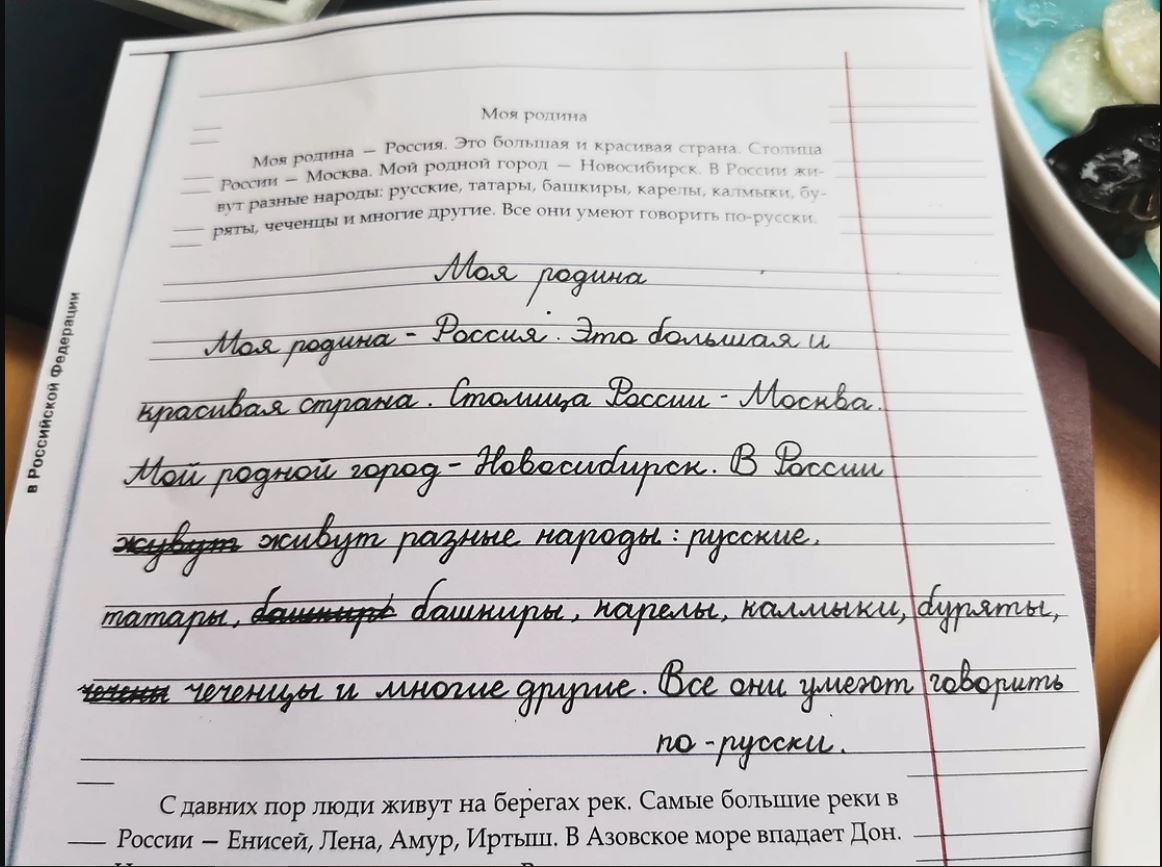 Моя родина
Моя родина — Россия. Это большая и красивая страна. Столица
России — Москва. Мой родной город — Новосибирск. В России жи-
вут разные народы: русские, татары, башкиры, карелы, калмыки, бу-
ряты, чеченцы и многие другие. Все они умеют говорить по-русски.
Моя родина
Моя родина - Россия. Это большая и
красивая страна. Столица России - Москва.
Мой родной город - Новосибирск. В России
живут разные народы: русские,
татары, башкиры, карелы, калмыки, буряты,
чеченцы и многие другие. Все они умеют говорить
по-русски.
в Российской Федерации
С давних пор люди живут на берегах рек. Самые большие реки в
России — Енисей, Лена, Амур, Иртыш. В Азовское море впадает Дон.